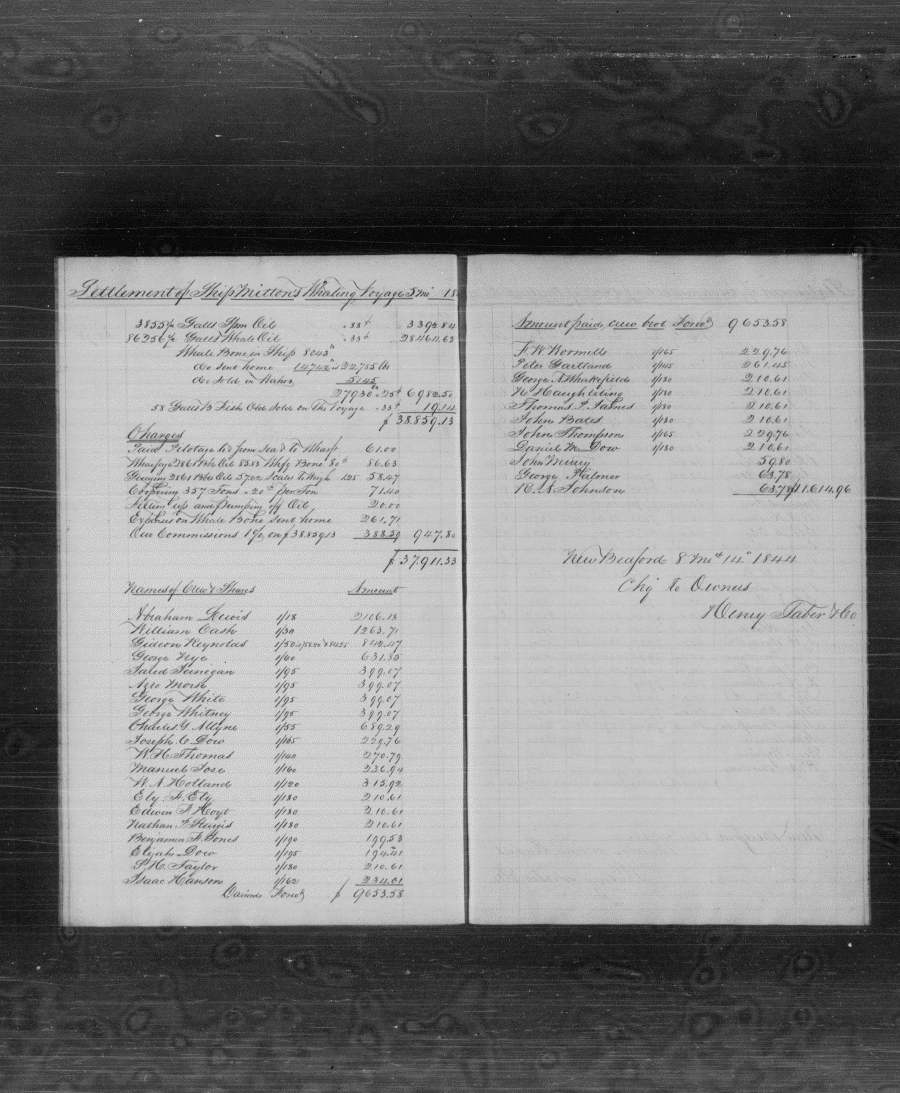 Settlement of Ship Milton's Whaling Voyage 5 mo 18
3855½ Galls Spm Oil .88¢ 3392.84
86256½ Galls Whale Oil .33¢ 28464.65
Whale Bone in Ship 8043
do sent home 14742 is 22785 lbs
do sold in Maher 5145
27930 .25¢ 6982.50
58 Galls B Fish Oil Sold on The Voyage .33¢ 19.14
$ 38.859.13
Charges
Paid Pilotage &c from Sea & To Wharf 61.00
Wharfage 2861 Pkgs Oil 8383 Whfg Bone 80¢ 86.63
Gauging 2861 Pkgs Oil Scales to Weigh 1.25 58.47
Coopering 357 Tons .20¢ per Ton 71.40
Filling up and Bumping off Oil 20.00
Expenses on Whale Bone sent home 261.71
Our Commissions 1% on $38859.13 388.59 947.80
$ 37.911.33
Names of Crew & Shares Amount
Abraham Lewis 1/18 2106.18
William Cash 1/30 1263.71
Gideon Reynolds 1/50 842.47
George Nye 1/60 631.85
Jared Finnigan 1/95 399.07
Asro Morse 1/95 399.07
George White 1/95 399.07
George Whitney 1/95 399.07
Charles G Allyne 1/55 689.29
Joseph C Dow 1/165 229.76
W. H. Thomas 1/140 270.79
Manuel Jose 1/160 236.94
W. A. Holland 1/120 315.92
Ely F. Ely 1/180 210.61
Edwin F. Hoyt 1/180 210.61
Nathan P. Sturgis 1/180 210.61
Benjamin F. Jones 1/190 199.53
Elijah Dow 1/195 194.41
P. H. Taylor 1/180 210.61
Isaac Hanson 1/162 234.01
Carried Forwd $ 9653.58
Amount paid crew brot Forwd 9653.58
F. W. Wormells 1/165 229.76
Peter Gartland 1/145 261.45
George A. Wharefields 1/180 210.61
Wm Haughiting 1/180 210.61
Thomas P. Farnes 1/180 210.61
John Bates 1/180 210.61
John Thompson 1/165 229.76
Daniel M. Dow 1/180 210.61
John Murray 59.80
George Plasner 63.78
R. S. Johnson 63.78 $11.614.96
New Bedford 8 Mo 14 1844
Chg to Owners
Henry Taber & Co